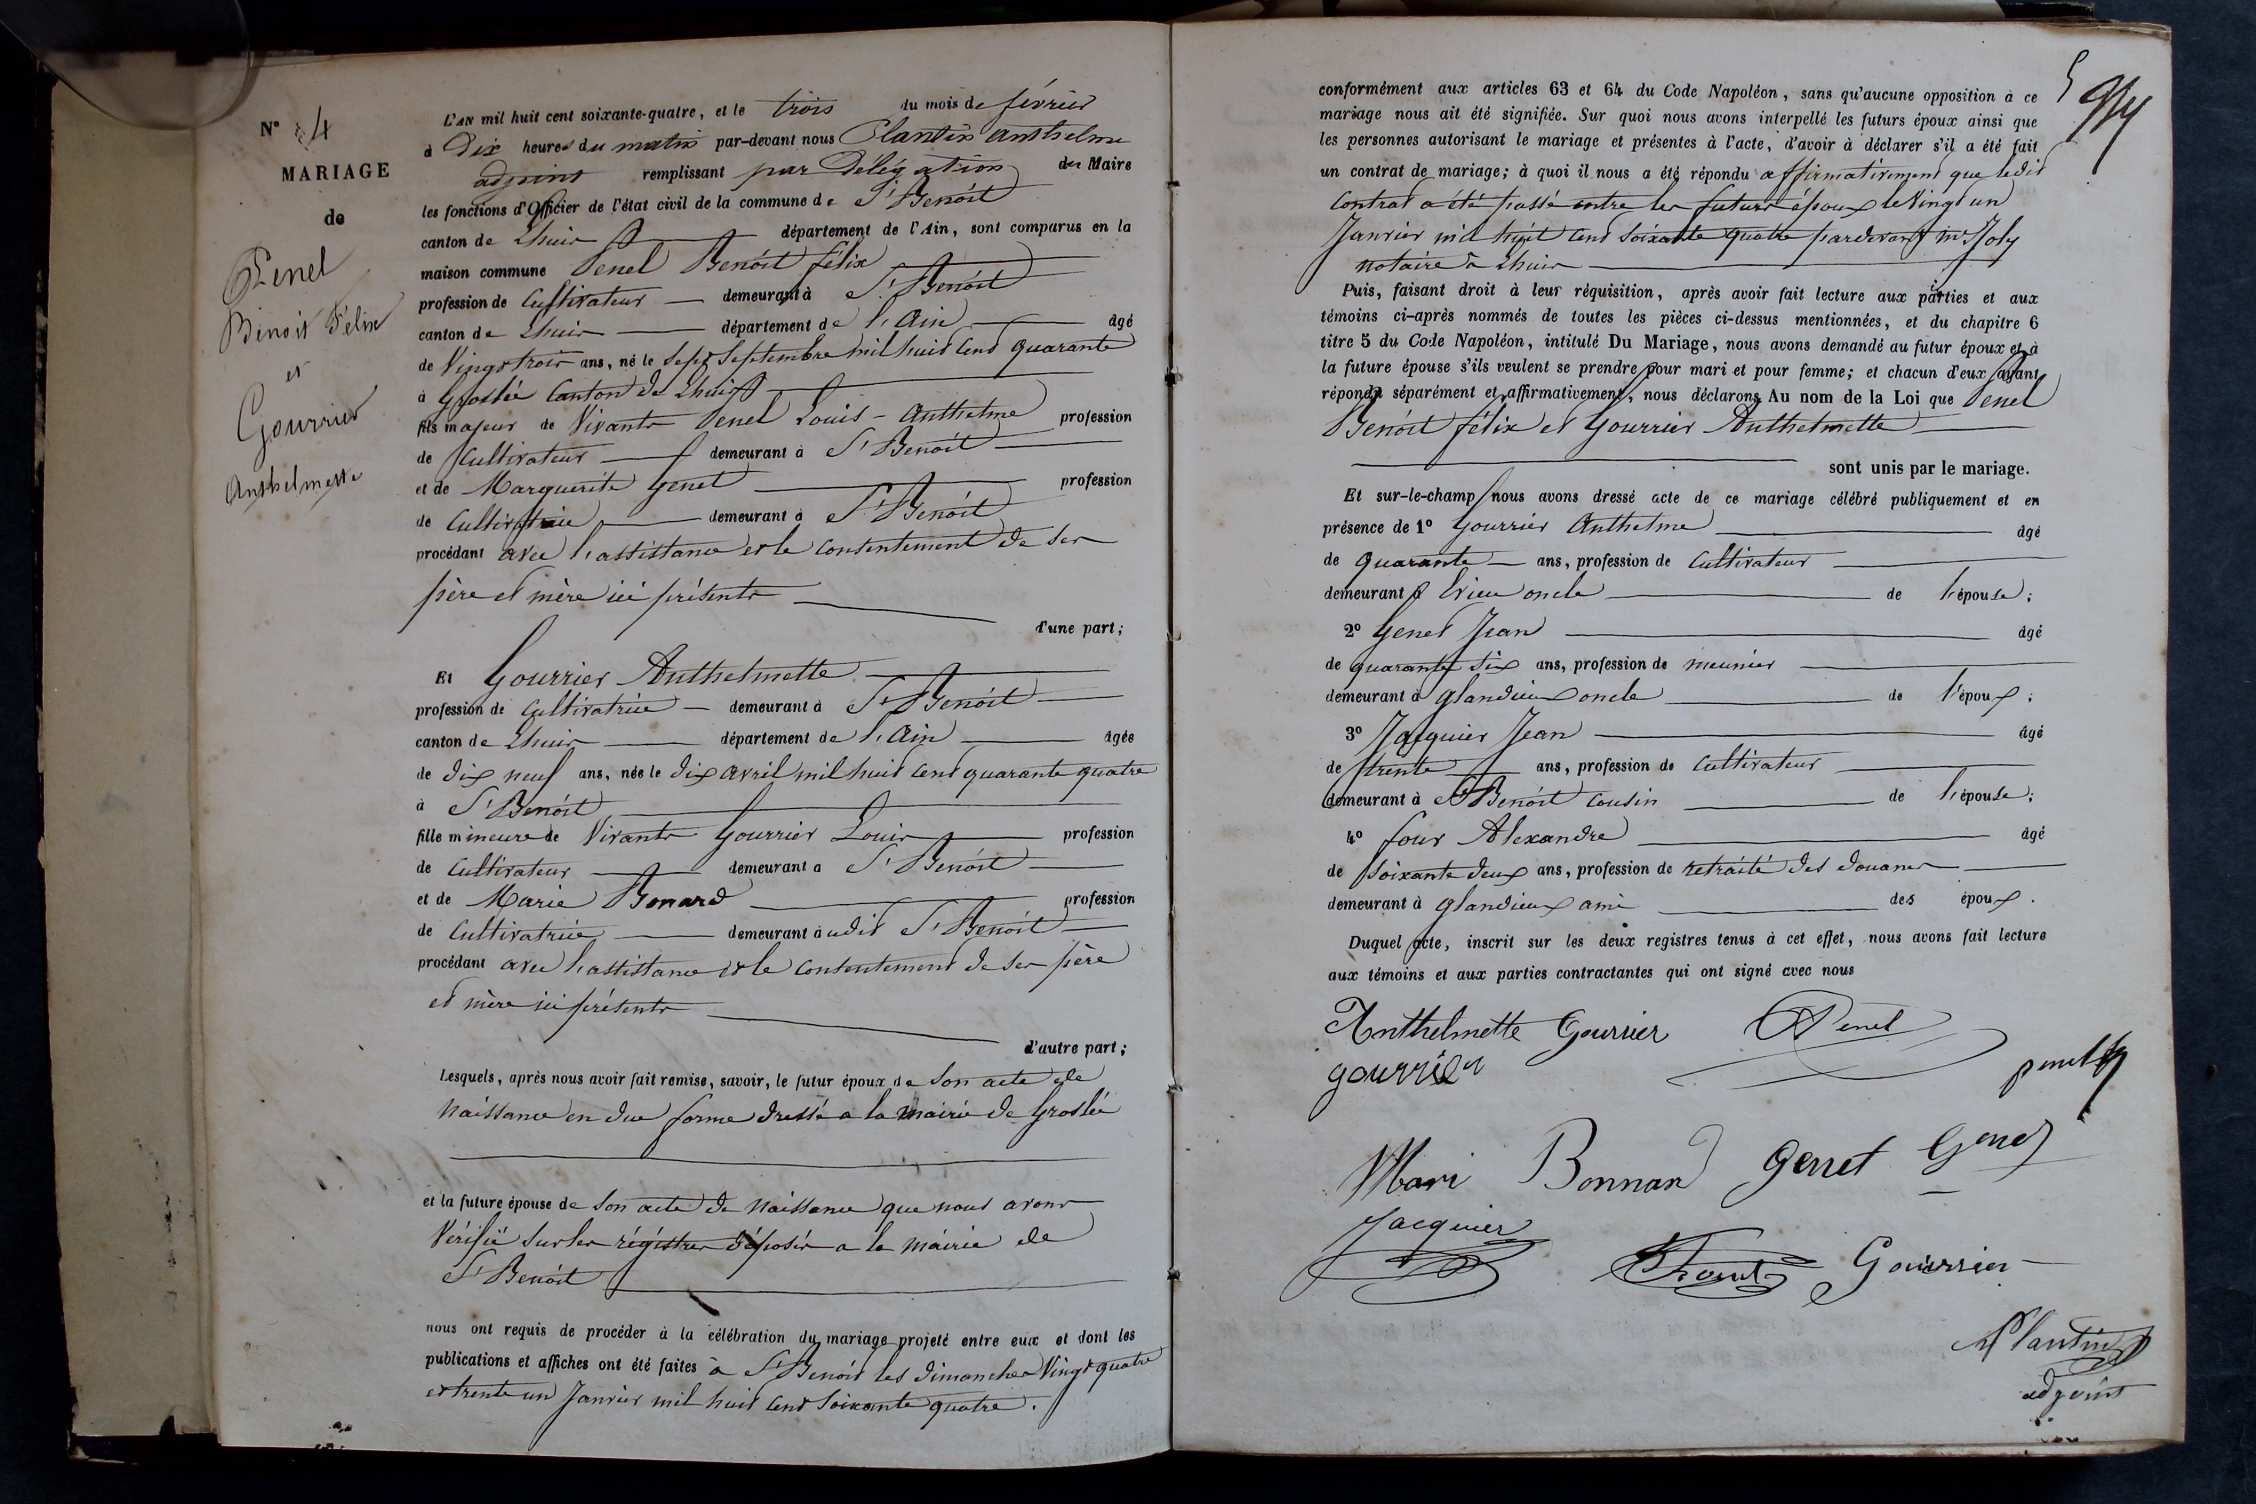 N° 4
MARIAGE
de
Penel
Benoit Félix
et
Gourrier
Anthelmette
L'AN mil huit cent soixante-quatre, et le trois du mois de février
à Dix heures du matin par-devant nous Plantin Anthelme
adjoint remplissant par Délégation du Maire
les fonctions d'Officier de l'état civil de la commune de St Benoit
canton de Lhuis département de l'Ain, sont comparus en la
maison commune Penel Benoit félix
profession de Cultivateur demeurant à St Benoit
canton de Lhuis département de l'Ain âgé
de Vingt trois ans, né le sept Septembre mil huit cent quarante
à Groslée Canton de Lhuis
fils majeur de Vivants Penel Louis - Anthelme profession
de Cultivateur demeurant à St Benoit
et de Marguerite Genet profession
de Cultivatrice demeurant à St Benoit
procédant avec l'assistance et le consentement de ses
père et mère ici présents
d'une part;
Et Gourrier Anthelmette
profession de Cultivatrice demeurant à St Benoit
canton de Lhuis département de l'Ain âgée
de dix neuf ans, née le dix avril mil huit cent quarante quatre
à St Benoit
fille mineure de Vivants Gourrier Louis profession
de Cultivateur demeurant a St Benoit
et de Marie Bonard profession
de Cultivatrice demeurant audit St Benoit
procédant avec l'assistance et le consentement de ses père
et mère ici présents
d'autre part;
Lesquels, après nous avoir fait remise, savoir, le futur époux de son acte de
Naissance en due forme dressé a la mairie de Groslée
et la future épouse de son acte de naissance que nous avons
Vérifié sur les régistres déposés a la mairie de
St Benoit
nous ont requis de procéder à la célébration du mariage projeté entre eux et dont les
publications et affiches ont été faites à St Benoit les dimanches Vingt quatre
et trente un Janvier mil huit cent soixante quatre.
5
conformément aux articles 63 et 64 du Code Napoléon, sans qu'aucune opposition à ce
mariage nous ait été signifiée. Sur quoi nous avons interpellé les futurs époux ainsi que
les personnes autorisant le mariage et présentes à l'acte, d'avoir à déclarer s'il a été fait
un contrat de mariage; à quoi il nous a été répondu affirmativement que ledit
Contrat a été passé entre les futurs époux le Vingt un
Janvier mil huit cent soixante quatre pardevant me Joly
notaire à Lhuis
Puis, faisant droit à leur réquisition, après avoir fait lecture aux parties et aux
témoins ci-après nommés de toutes les pièces ci-dessus mentionnées, et du chapitre 6
titre 5 du Code Napoléon, intitulé Du Mariage, nous avons demandé au futur époux et à
la future épouse s'ils veulent se prendre pour mari et pour femme; et chacun d'eux ayant
répondu séparément et affirmativement, nous déclarons Au nom de la Loi que Penel
Benoit félix et Gourrier Anthelmette
sont unis par le mariage.
Et sur-le-champ nous avons dressé acte de ce mariage célébré publiquement et en
présence de 1° Gourrier Anthelme âgé
de quarante ans, profession de Cultivateur
demeurant à oncle de l'épouse;
2° Genet Jean âgé
de quarante six ans, profession de meunier
demeurant à Glandieux oncle de l'époux;
3° Jacquier Jean âgé
de trente ans, profession de Cultivateur
demeurant à St Benoit cousin de l'épouse;
4° four Alexandre âgé
de soixante deux ans, profession de retraité des douanes
demeurant à Glandieux ami des époux.
Duquel acte, inscrit sur les deux registres tenus à cet effet, nous avons fait lecture
aux témoins et aux parties contractantes qui ont signé avec nous
Anthelmette Gourrier Penel
gourrier penel
Mari Bonnard genet Genet
Jacquier
Gourrier
Plantin
adjoint